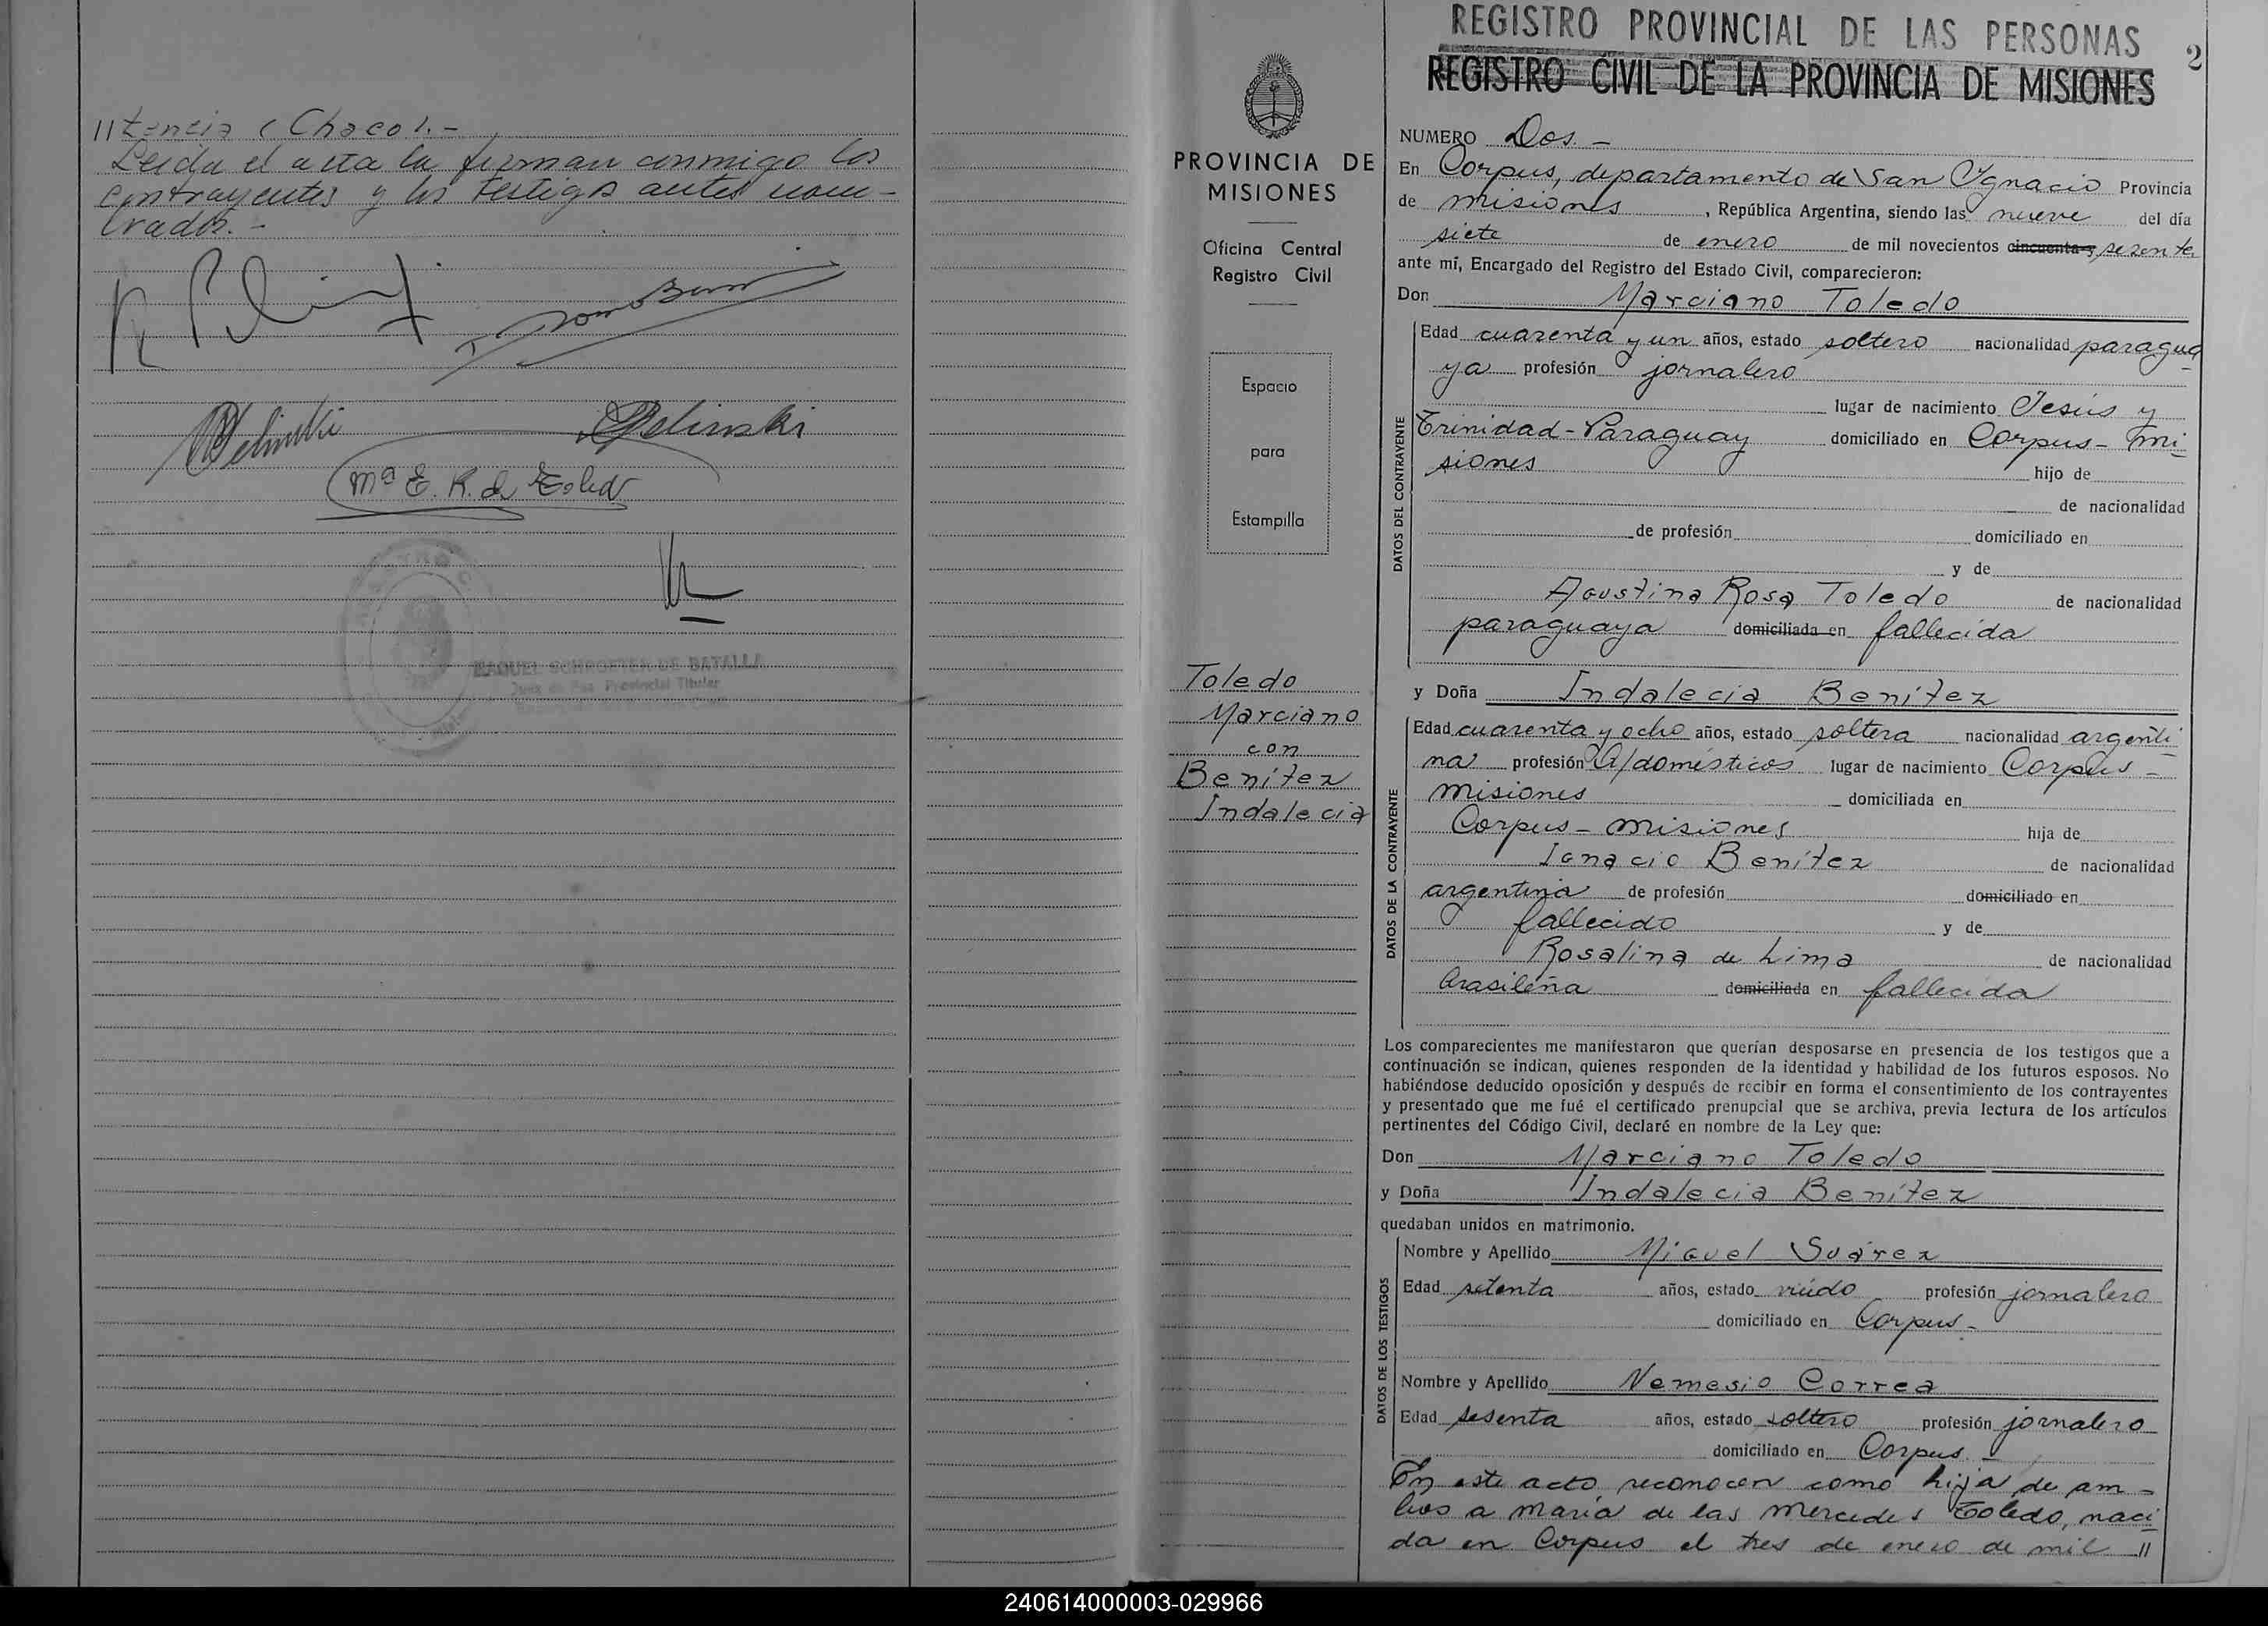 //tencia (Chaco).-
Leida el acta la firman conmigo los
contrayentes y los testigos antes nom-
brados.-
Mª E. R. de Toledo
RAQUEL SCHROFTER DE BATALLA
Juez de Paz Provincial Titular
PROVINCIA DE
MISIONES
Oficina Central
Registro Civil
Espacio
para
Estampilla
Toledo
Marciano
con
Benítez
Indalecia
REGISTRO PROVINCIAL DE LAS PERSONAS
2
REGISTRO CIVIL DE LA PROVINCIA DE MISIONES
NUMERO Dos.-
En Corpus, departamento de San Ignacio Provincia
de misiones, República Argentina, siendo las nueve del día
siete de enero de mil novecientos cincuenta y sesenta
ante mí, Encargado del Registro del Estado Civil, comparecieron:
Don Marciano Toledo
Edad cuarenta y un años, estado soltero nacionalidad paragua-
ya profesión jornalero
lugar de nacimiento Jesús y
Trinidad-Paraguay domiciliado en Corpus-mi-
siones hijo de
de nacionalidad
de profesión domiciliado en
y de
Agustina Rosa Toledo de nacionalidad
paraguaya domiciliada en fallecida
y Doña Indalecia Benítez
Edad cuarenta y ocho años, estado soltera nacionalidad argenti-
na profesión Q/domésticos lugar de nacimiento Corpus-
misiones domiciliada en
Corpus-misiones hija de
Ignacio Benítez de nacionalidad
argentina de profesión domiciliado en
fallecido y de
Rosalina de Lima de nacionalidad
brasileña domiciliada en fallecida
Los comparecientes me manifestaron que querían desposarse en presencia de los testigos que a
continuación se indican, quienes responden de la identidad y habilidad de los futuros esposos. No
habiéndose deducido oposición y después de recibir en forma el consentimiento de los contrayentes
y presentado que me fué el certificado prenupcial que se archiva, previa lectura de los artículos
pertinentes del Código Civil, declaré en nombre de la Ley que:
Don Marciano Toledo
y Doña Indalecia Benítez
quedaban unidos en matrimonio.
Nombre y Apellido Miguel Suárez
Edad setenta años, estado viúdo profesión jornalero
domiciliado en Corpus-
Nombre y Apellido Nemesio Correa
Edad sesenta años, estado soltero profesión jornalero
domiciliado en Corpus.-
En este acto reconocen como hija de am-
bos a maría de las mercedes Toledo, naci-
da en Corpus el tres de enero de mil //
DATOS DEL CONTRAYENTE
DATOS DE LA CONTRAYENTE
DATOS DE LOS TESTIGOS
240614000003-029966